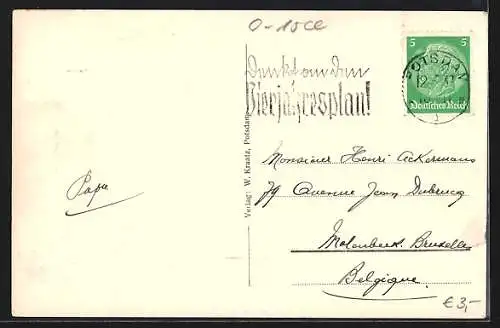 0-15cc
Denkt an den
Vierjahresplan!
5 5
POTSDAM
Deutsches Reich
Verlag: W. Kraatz, Potsdam
Monsieur Henri Ackermans
79 Avenue Jean Dubrucq
Molenbeek. Bruxelles
Belgique.
Papa
€ 3,-